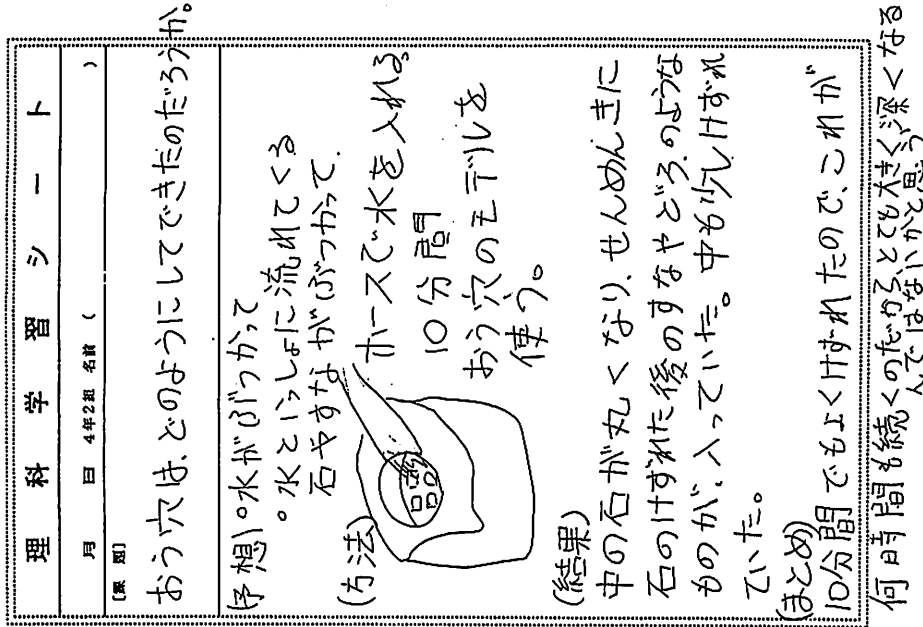 理科学習シート
月 日 4年2組 名前( )
[課題]
おう穴は、どのようにしてできたのだろうか。
(予想)。水がぶつかって
。水といっしょに流れてくる
石やすながぶつかって、
(方法)
ホースで水を入れる。
10分間
おう穴のモデルを
使う。
(結果)
中の石が丸くなり、せんめんきに
石のけずれた後のすなやどろのような
ものが、入っていた。中も少しけずれ
ていた。
(まとめ)
10分間でもよくけずれたので、これが
何時間も続くのだからとても大きく深くなる
んではないかと思う